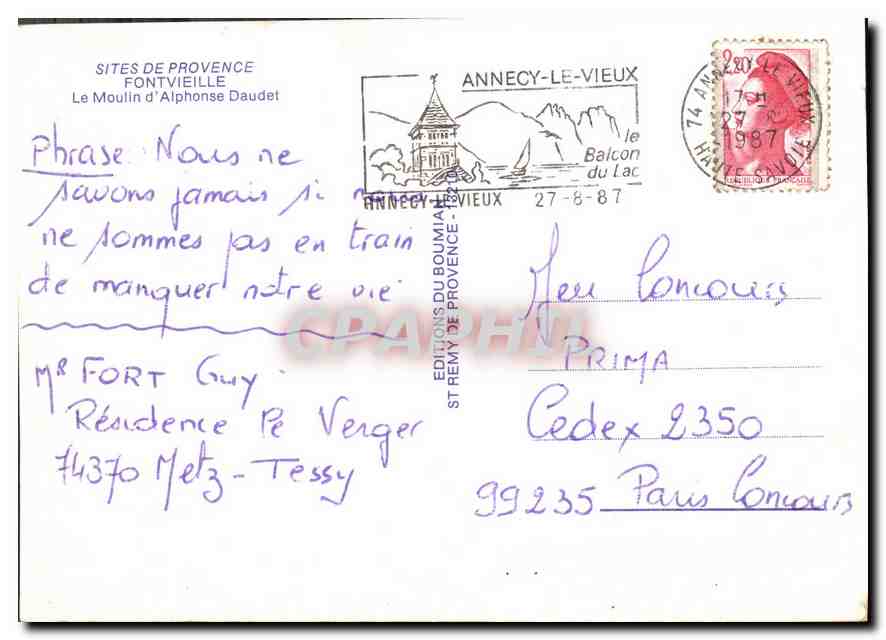 SITES DE PROVENCE
FONTVIEILLE
Le Moulin d'Alphonse Daudet
Phrase: Nous ne
savons jamais si nous
ne sommes pas en train
de manquer notre vie
Mr FORT Guy
Résidence Le Verger
74370 Metz-Tessy
EDITIONS DU BOUMIAN
ST REMY DE PROVENCE -
ANNECY-LE-VIEUX
le
Balcon
du Lac
ANNECY-LE-VIEUX 27-8-87
74 ANNECY-LE-VIEUX
17 H
27 - 8
1987
HAUTE-SAVOIE
2,20
REPUBLIQUE FRANÇAISE
Jeu Concours
PRIMA
Cedex 2350
99235 Paris Concours
CPAPHIL